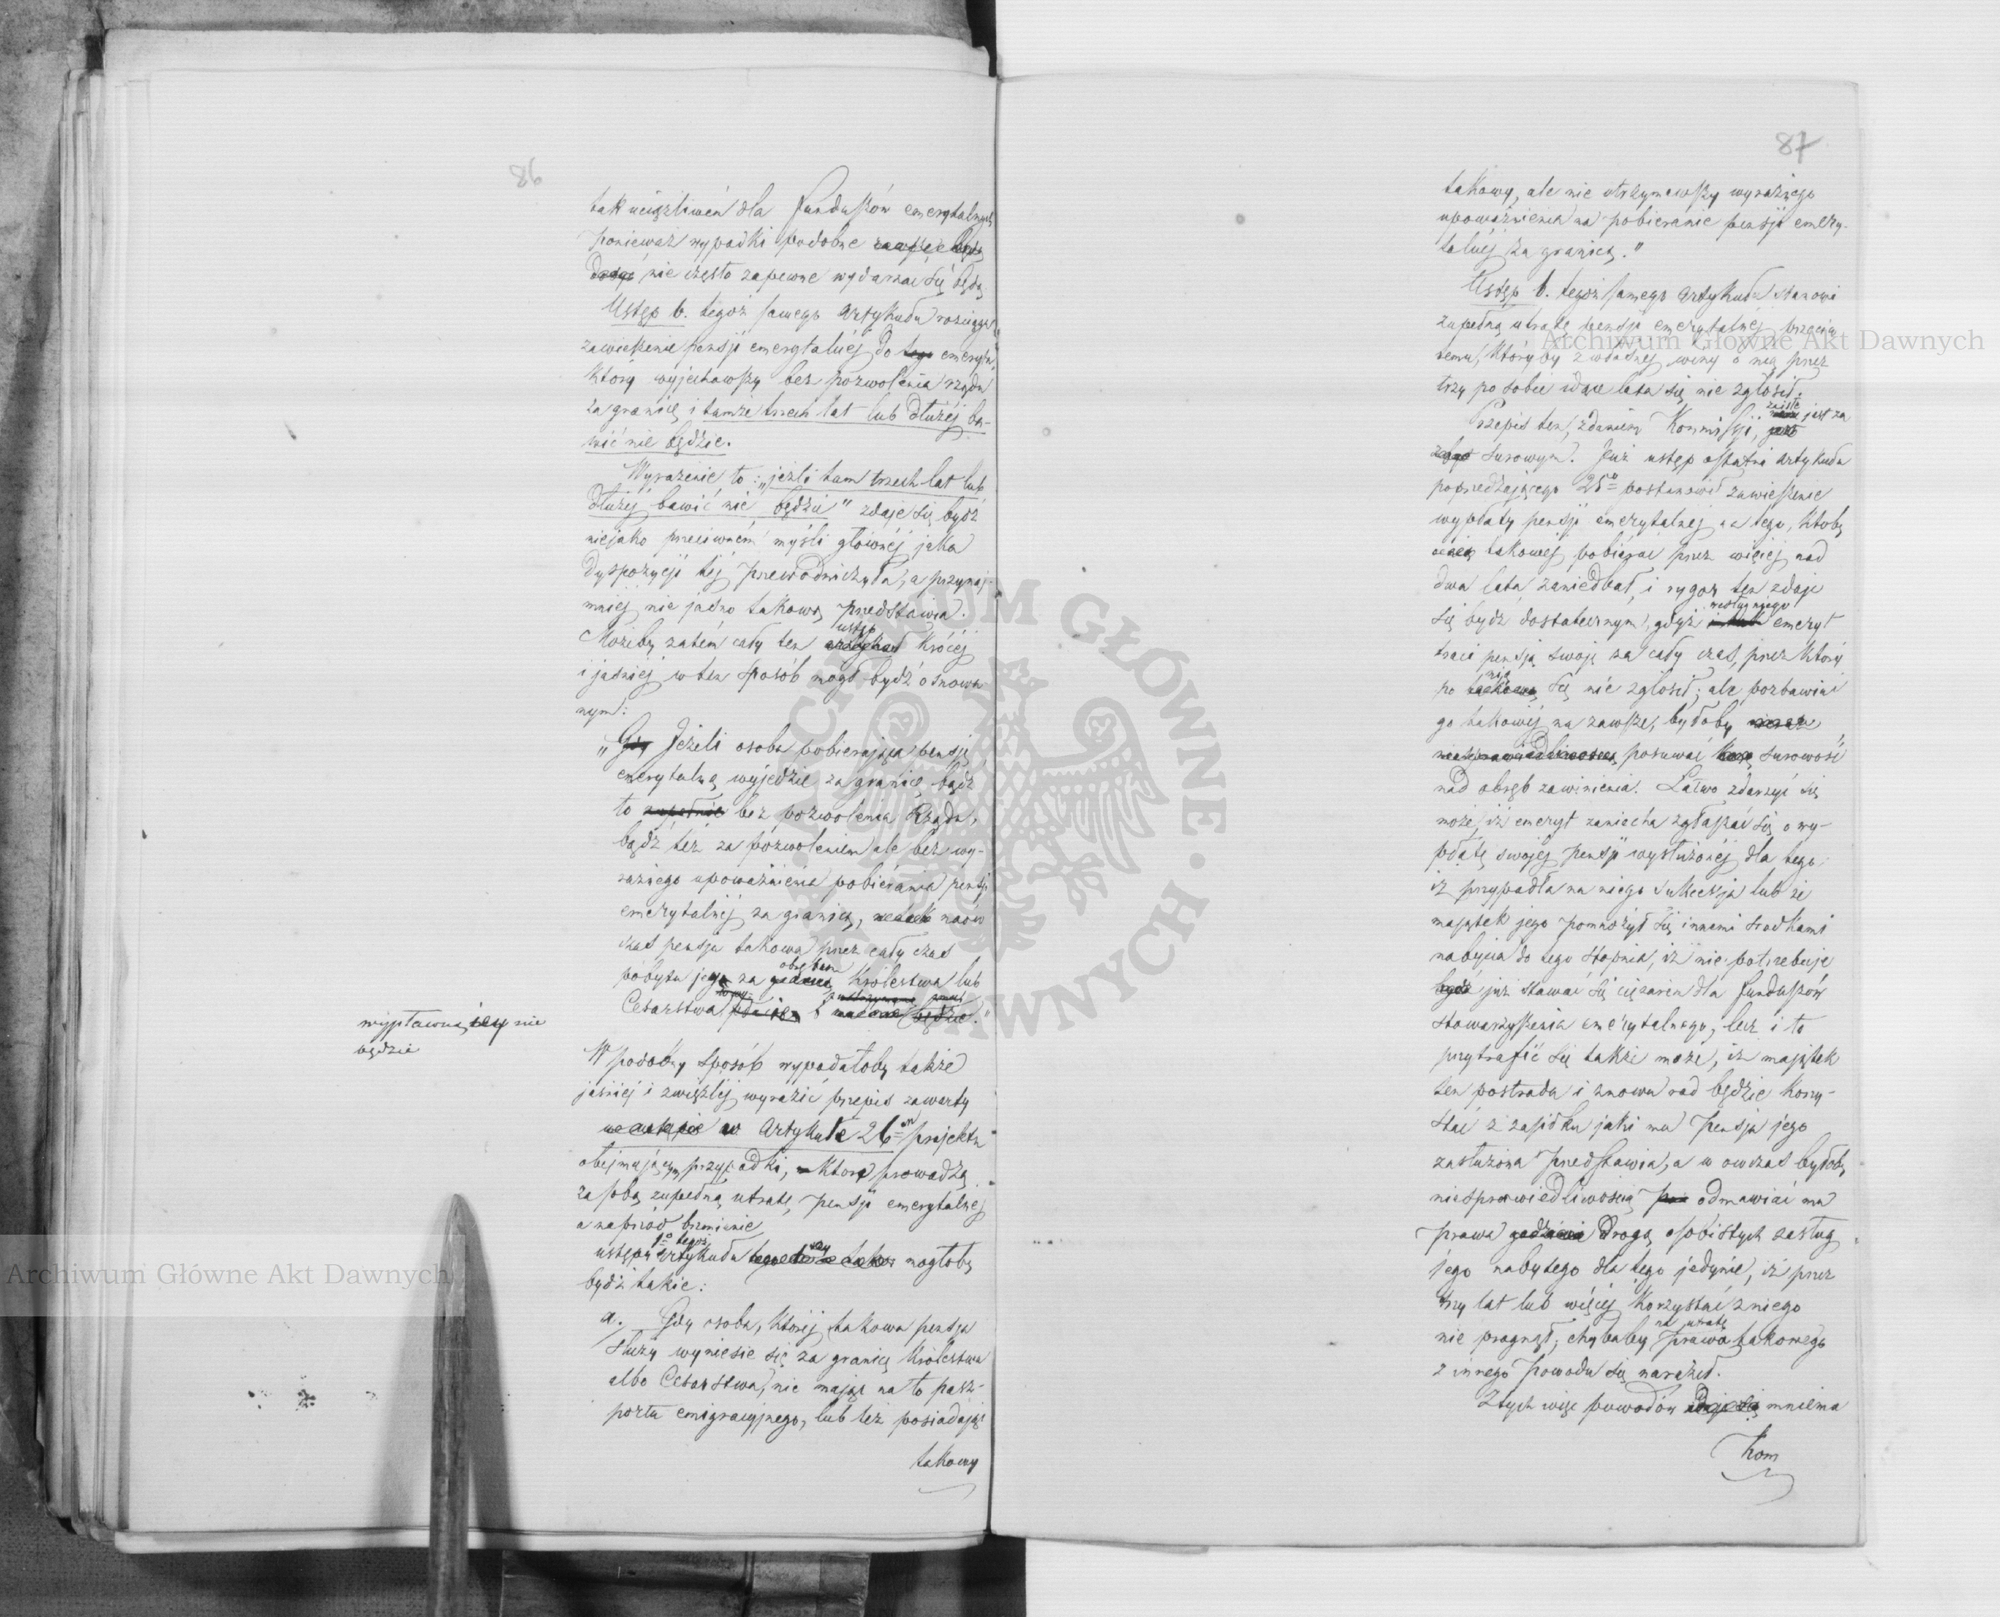 86
tak uciążliwém dla funduszów emerytalnych
ponieważ wypadki podobne zawsze będą
dosyć nie często zapewne wydarzać się będą.
Ustęp b. tegoż samego Artykułu rozciąga
zawieszenie pensji emerytalnéj do tego emeryta,
który wyjechawszy bez pozwolenia rządu
za granicę i tamże trzech lat lub dłużéj ba-
wić nie będzie.
Wyrażenie to: „jeżli tam trzech lat lub
dłużéj bawić nie będzie" zdaje się bydź
niejako przeciwném myśli głównéj jaka
dyspozycji téj przewodniczyła, a przynaj-
mniéj nie jasno takową przedstawia.
Możeby zatém cały ten artykuł ustęp krócéj
i jaśniéj w ten sposób mógł bydź osnowa-
nym:
„Gdy Jeżeli osoba pobierająca pensję
emerytalną wyjedzie za granicę bądź
to zupełnie bez pozwolenia Rządu,
bądź też za pozwoleniem ale bez wy-
raźnego upoważnienia pobierania pensji
emerytalnéj za granicą, naów
czas pensja takowa przez cały czas
pobytu jego za obrębem Królestwa lub
Cesarstwa będzie."
wypłacaną jéj nie
będzie
W podobny sposób wypadałoby także
jaśniéj i zwięźléj wyrazić przepis zawarty
w Artykule 26ym projektu
obejmującym przypadki, które prowadzą
za sobą zupełną utratę pensji emerytalnéj
a naprzód brzmienie
ustępu 1o tegoż Artykułu mogłoby
bydź takie:
a. Gdy osoba, któréj takowa pensja
służy wyniesie się za granicę Królestwa
albo Cesarstwa, nie mając na to pasz-
portu emigracyjnego, lub też posiadając
takowy
87
takowy, ale nie otrzymawszy wyraźnego
upoważnienia na pobieranie pensji emery-
talnéj za granicą."
Ustęp b. tegoż samego Artykułu stanowi
zupełną utratę pensji emerytalnéj przeciw
temu, któryby z własnéj winy o nią przez
trzy po sobie idące lata się nie zgłosił.
Przepis ten, zdaniem Kommissji, zaiste jest za
surowym. Już ustęp ostatni Artykułu
poprzedzającego 25o postanowił zawieszenie
wypłaty pensji emerytalnej na tego, ktoby
takowéj pobierać przez więcéj nad
dwa lata zaniedbał, i rygor ten zdaje
się bydź dostatecznym, gdyż emeryt
traci pensją swoję za cały czas, przez który
po nią się nie zgłosił; ale pozbawiać
go takowéj na zawsze, byłoby
niesprawiedliwością posuwać surowość
nad obręb zawinienia. Łatwo zdarzyć się
może, iż emeryt zaniecha zgłaszać się o wy-
płatę swojéj pensji wysłużonéj dla tego
iż przypadła na niego sukcessja lub że
majątek jego pomnożył się innemi środkami
nabycia do tego stopnia, iż nie potrzebuje
bydź już stawać się ciężarem dla funduszów
stowarzyszenia emerytalnego, lecz i to
przytrafić się także może, iż majątek
ten postrada i znowu rad będzie korzy-
stać z zasiłku jaki mu pensja jego
zasłużona przedstawia, a wówczas byłoby
niesprawiedliwością odmawiać mu
prawa drogą osobistych zasług
jego nabytego dla tego jedynie, iż przez
trzy lat lub więcéj korzystać z niego
nie pragnął, chybaby na utratę prawa takowego
z innego powodu się naraził.
Z tych więc powodów zdaje się mniema
Kom
Archiwum Główne Akt Dawnych
Archiwum Główne Akt Dawnych
ARCHIWUM GŁÓWNE AKT DAWNYCH